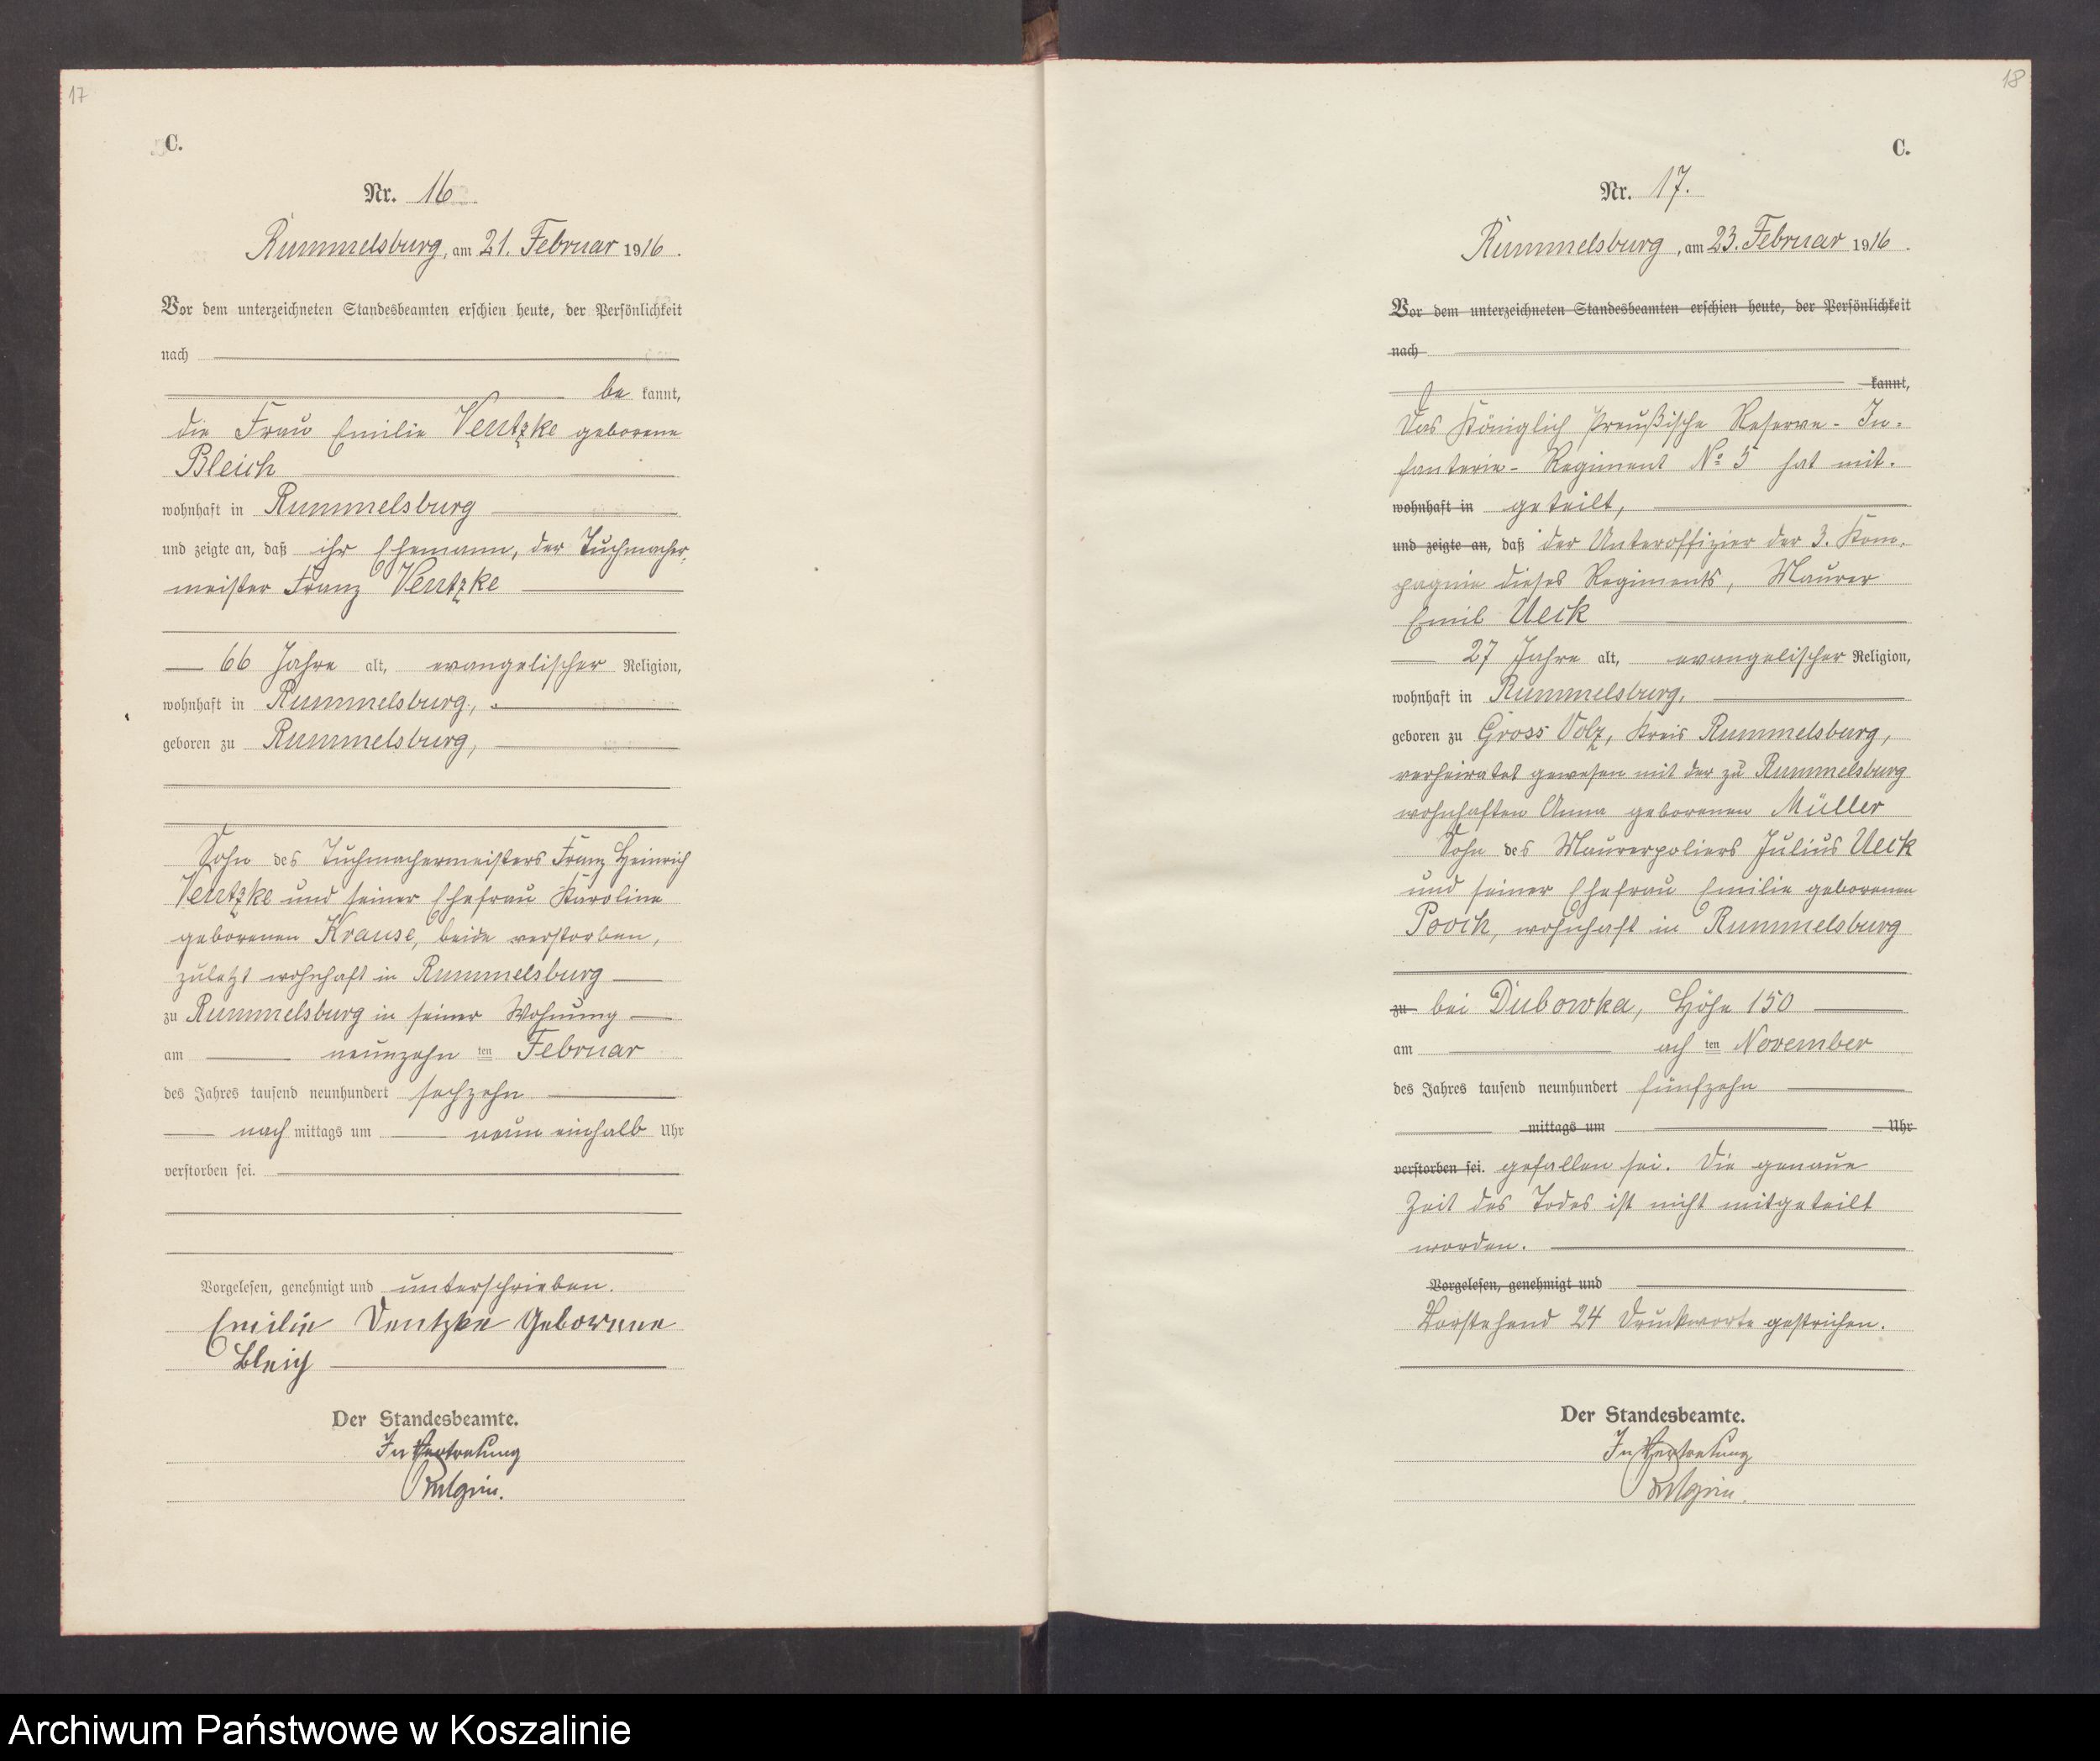 17
C.
Nr. 16
Rummelsburg, am 21. Februar 1916.
Vor dem unterzeichneten Standesbeamten erschien heute, der Persönlichkeit
nach
be kannt,
die Frau Emilie Ventzke geborene
Bleich
wohnhaft in Rummelsburg
und zeigte an, daß ihr Ehemann, der Tuchmacher-
meister Franz Ventzke
66 Jahre alt, evangelischer Religion,
wohnhaft in Rummelsburg,
geboren zu Rummelsburg,
Sohn des Tuchmachermeisters Franz Heinrich
Ventzke und seiner Ehefrau Karoline
geborenen Krause, beide verstorben,
zuletzt wohnhaft in Rummelsburg
zu Rummelsburg in seiner Wohnung
am neunzehn ten Februar
des Jahres tausend neunhundert sechzehn
nach mittags um neun einhalb Uhr
verstorben sei.
Vorgelesen, genehmigt und unterschrieben.
Emilie Ventzke Geborene
Bleich
Der Standesbeamte.
In Vertretung
18
C.
Nr. 17.
Rummelsburg, am 23. Februar 1916.
Vor dem unterzeichneten Standesbeamten erschien heute, der Persönlichkeit
nach
kannt,
Das Königlich Preußische Reserve-In-
fanterie-Regiment No 5 hat mit-
wohnhaft in geteilt,
und zeigte an, daß der Unteroffizier der 3. Kom-
pagnie dieses Regiments, Maurer
Emil Ueck
27 Jahre alt, evangelischer Religion,
wohnhaft in Rummelsburg,
geboren zu Gross Volz, Kreis Rummelsburg,
verheiratet gewesen mit der zu Rummelsburg
wohnhaften Anna geborenen Müller
Sohn des Maurerpoliers Julius Ueck
und seiner Ehefrau Emilie geborenen
Pooch, wohnhaft in Rummelsburg
zu bei Dubowka, Höhe 150
am ach ten November
des Jahres tausend neunhundert fünfzehn
mittags um Uhr
verstorben sei. gefallen sei. Die genaue
Zeit des Todes ist nicht mitgeteilt
worden.
Vorgelesen, genehmigt und
Vorstehend 24 Druckworte gestrichen.
Der Standesbeamte.
In Vertretung
Archiwum Państwowe w Koszalinie